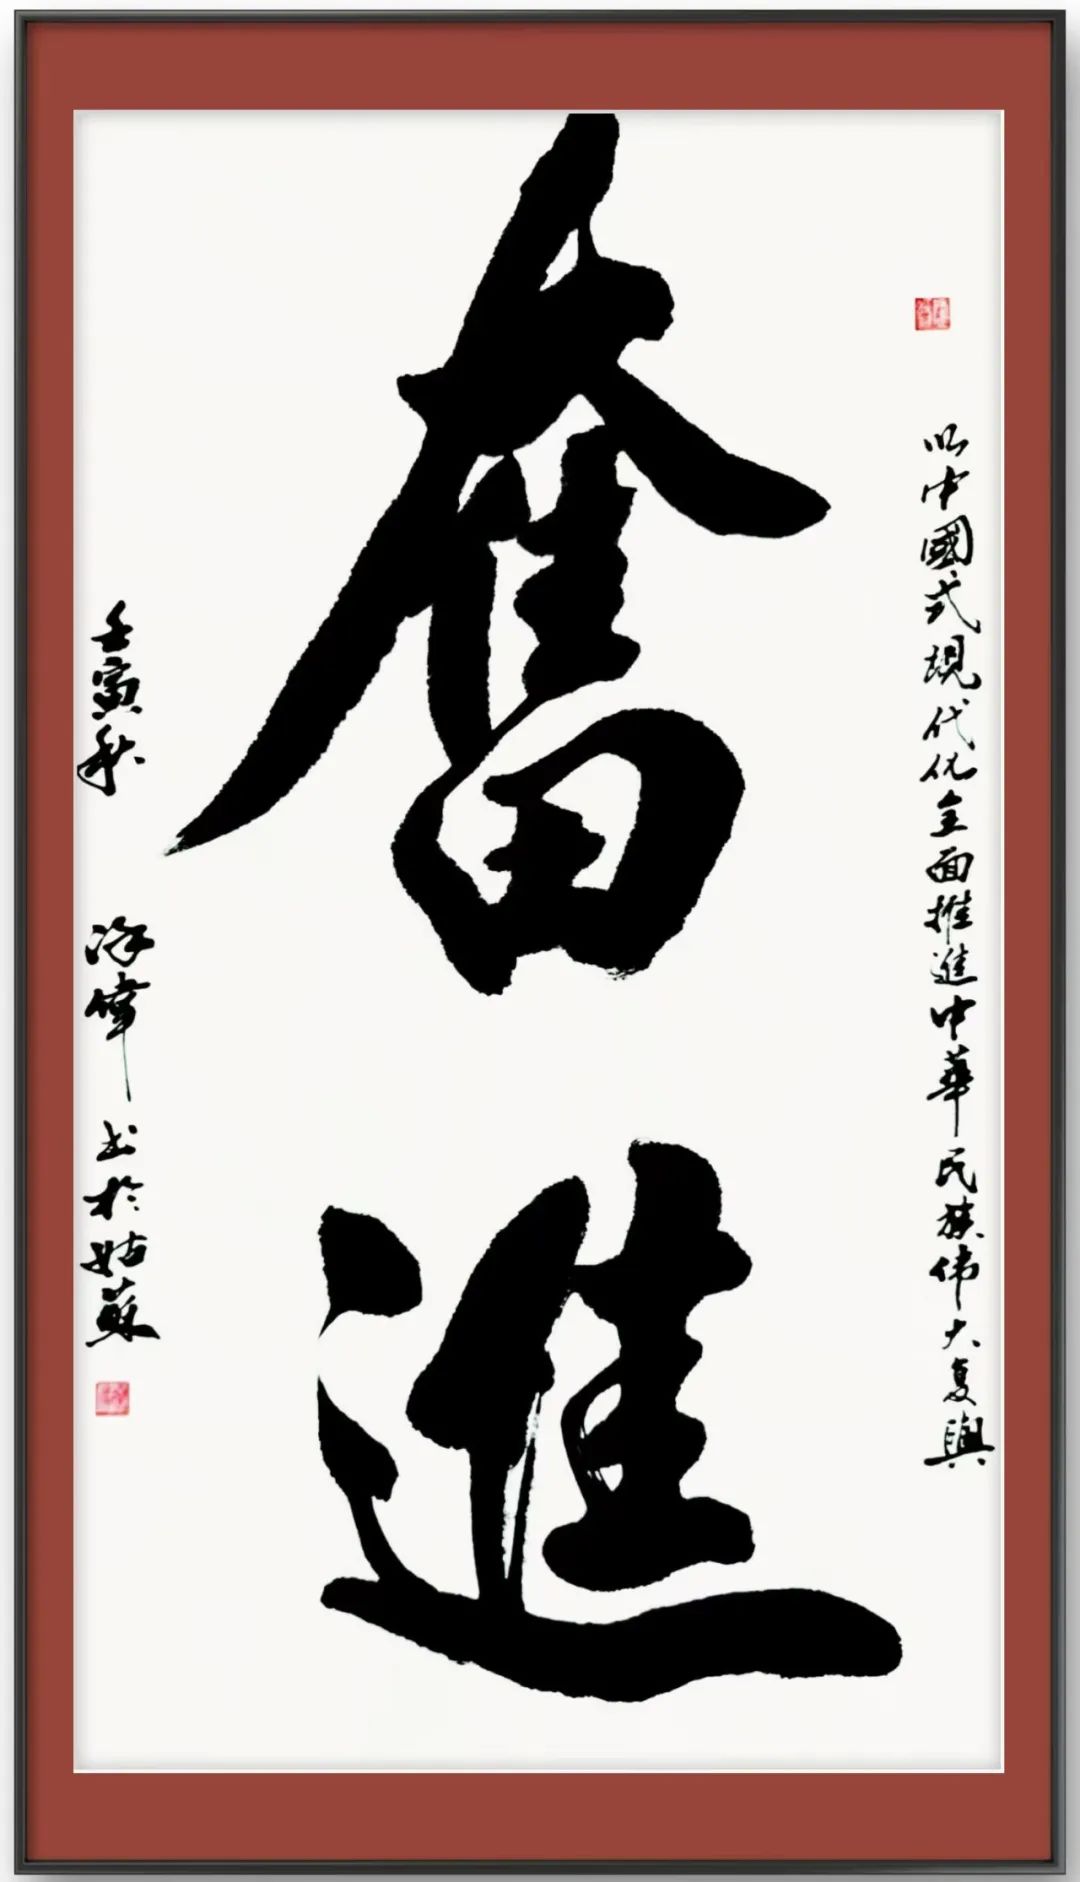 以中國式現代化全面推進中華民族伟大复興
奮進
壬寅秋 涂偉 书於姑蘇